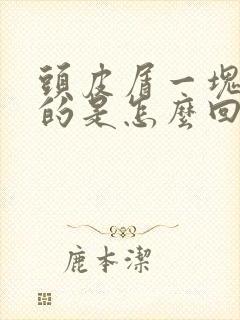 頭皮屑一塊
的是怎麼回
鹿本潔